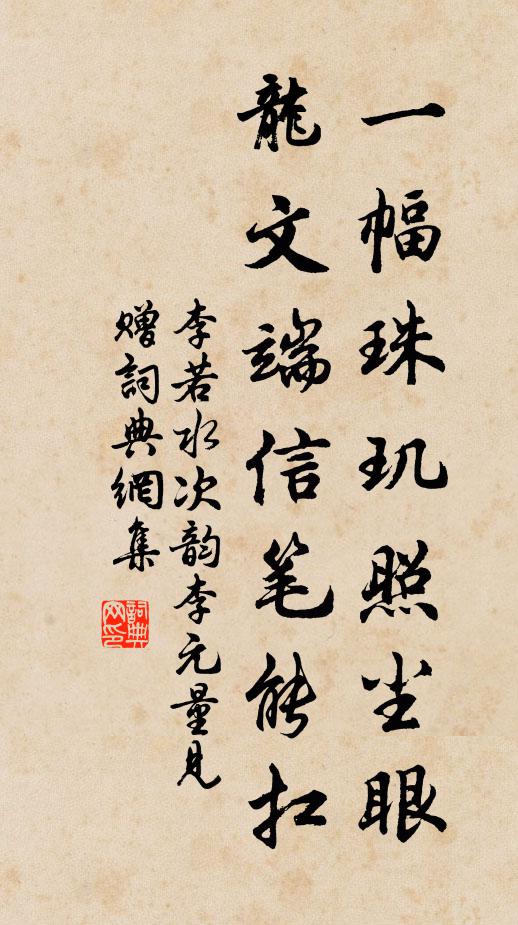 一幅珠玑照尘眼
龍文端信笔能扛
李若水次韵李元量見
赠詞典網集
詞典网印